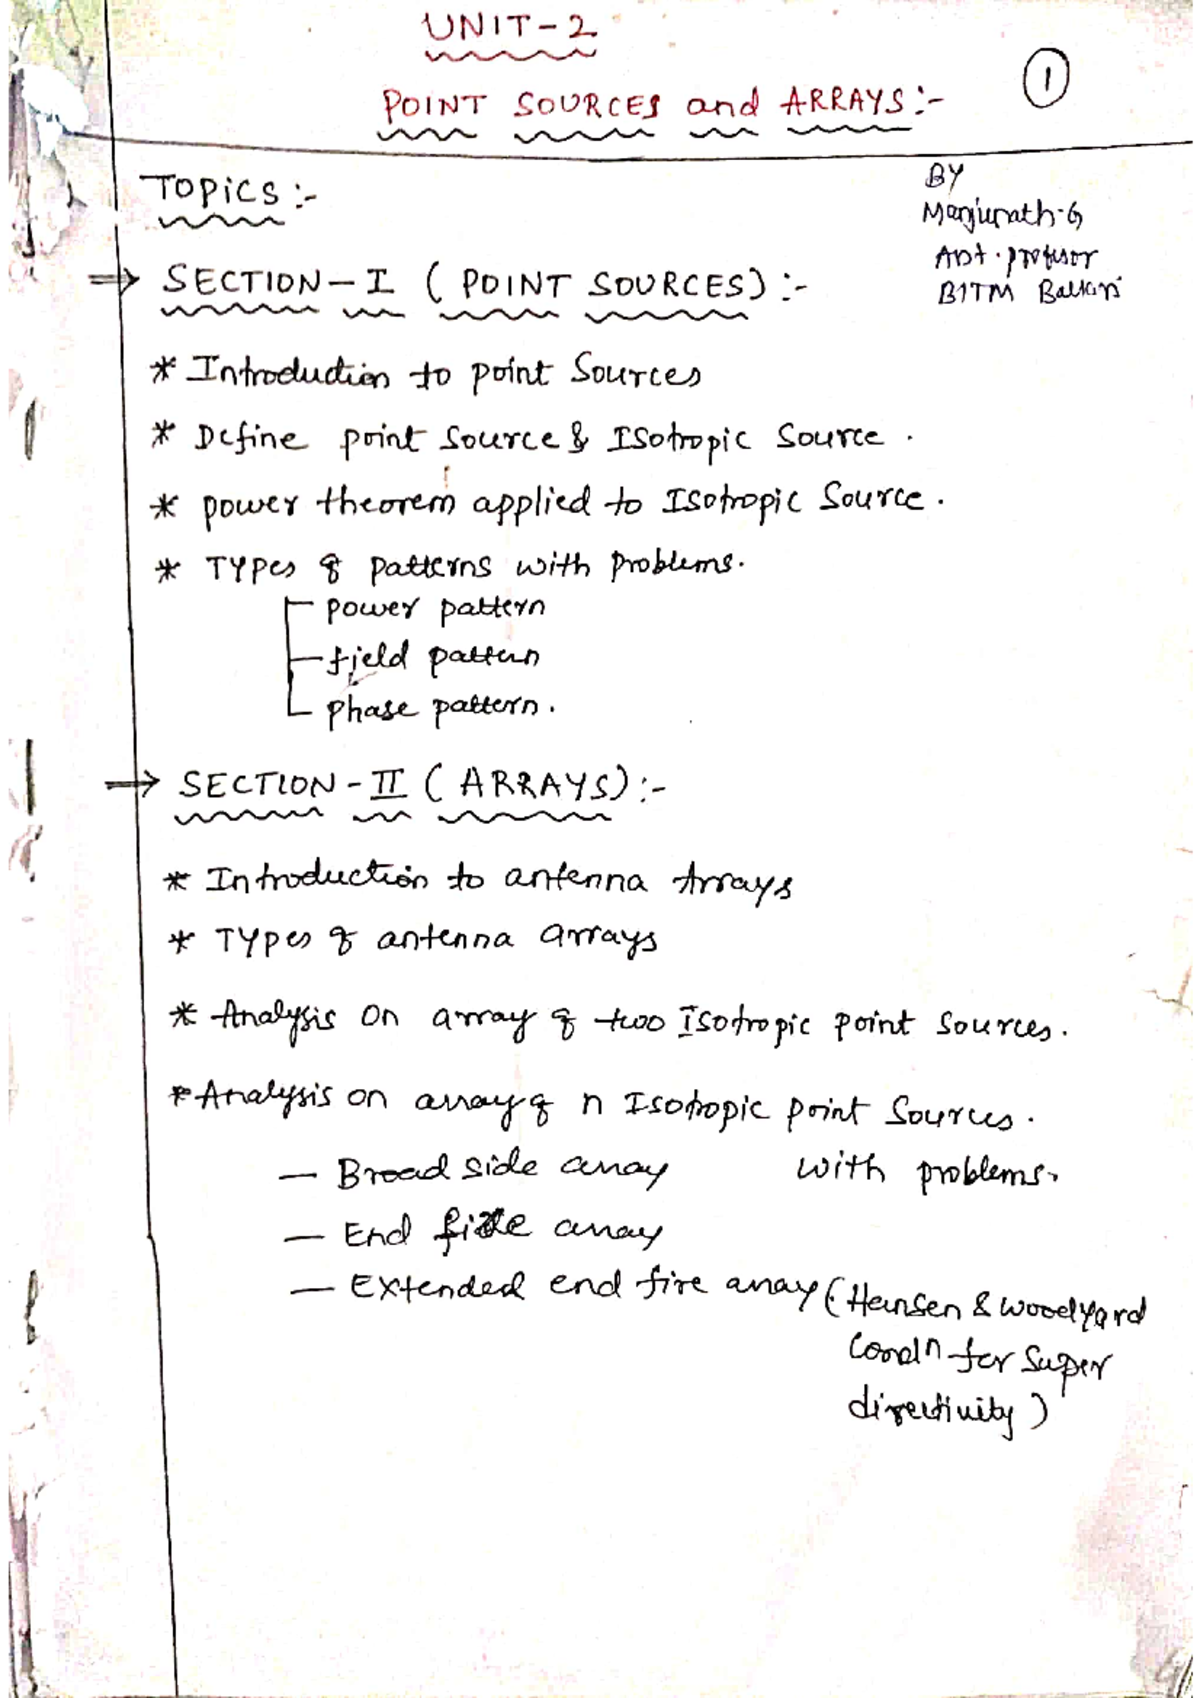 UNIT-2
1
POINT SOURCES and ARRAYS:-
BY
Manjunath·G
Asst. profesor
BITM Ballari
TOPICS:-
⇒ SECTION-I (POINT SOURCES):-
* Introduction to point Sources
* Define point source & Isotropic Source.
* power theorem applied to Isotropic Source.
* TYPes of patterns with problems.
power pattern
field pattern
phase pattern.
⇒ SECTION-II (ARRAYS):-
* Introduction to antenna Arrays
* TYPes of antenna arrays
* Analysis on array of two Isotropic point sources.
* Analysis on array of n Isotropic point Sources.
— Broad side array with problems.
— End fire array
— Extended end fire array (Hansen & woodyard
Condn for Super
directivity)